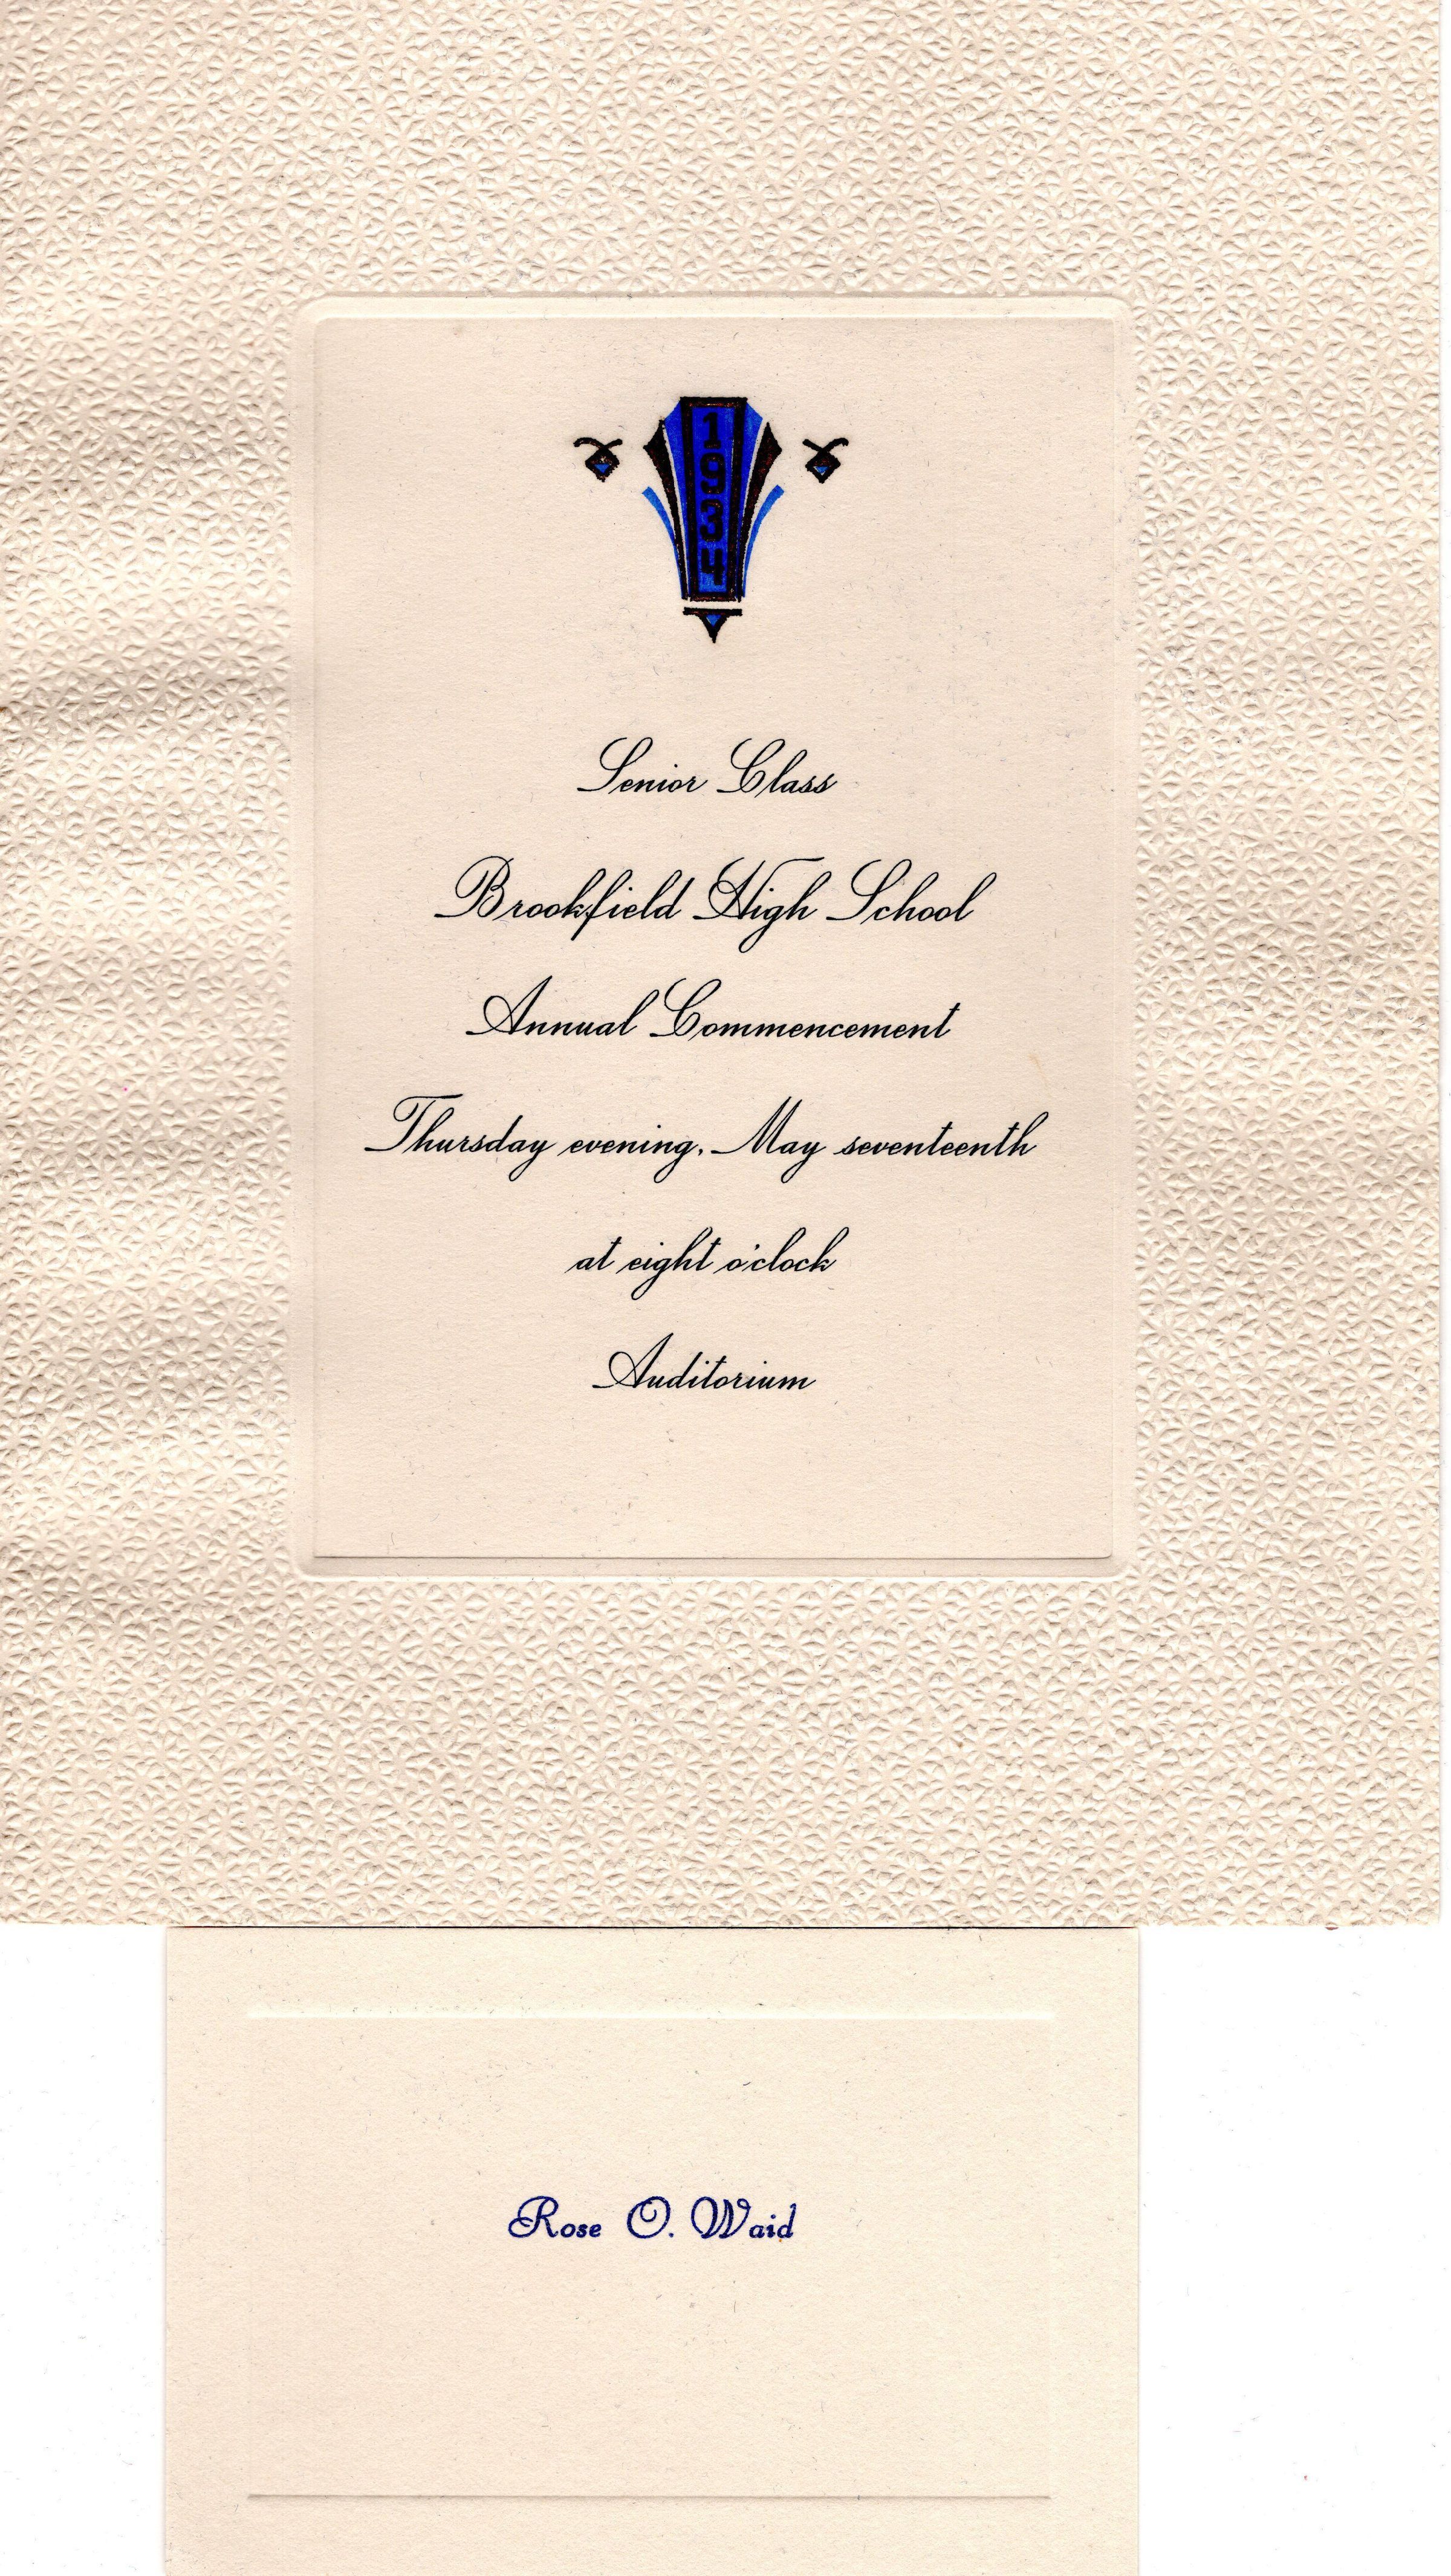 1934
Senior Class
Brookfield High School
Annual Commencement
Thursday evening, May seventeenth
at eight o'clock
Auditorium
Rose O. Waid